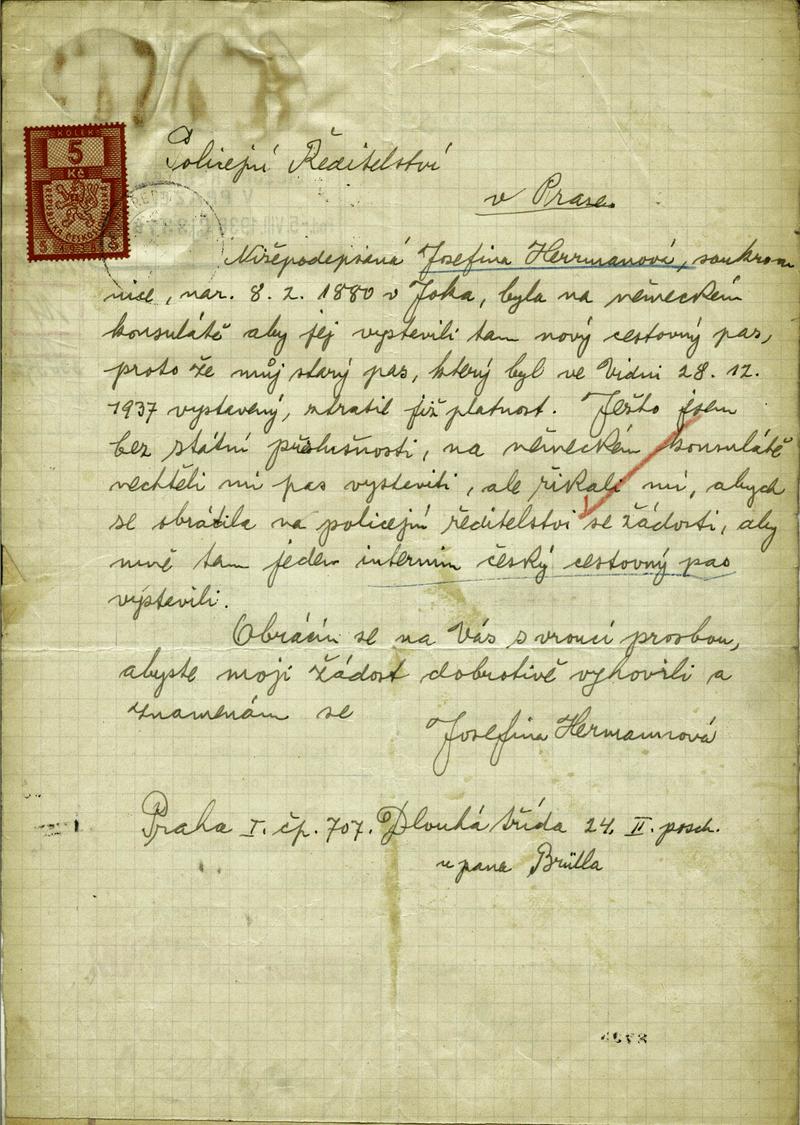 KOLEK
5
Kč
Policejní Ředitelství
v Praze.
Nížepodepsaná Josefina Herrmanová, soukrom
nice, nar. 8. 2. 1880 v Joka, byla na německém
konsulátě aby jej vystevili tam nový cestovný pas,
proto že můj starý pas, který byl ve Vídni 28. 12.
1937 vystavený, ztratil již platnost. Ježto jsem
bez státní příslušnosti, na německém konsulátě
nechtěli mi pas vystaviti, ale říkali mi, abych
se obrátila na policejní ředitelství se žádosti, aby
mně tam jeden interim český cestovný pas
vystavili.
Obrácím se na Vás s vroucí prosbou,
abyste moji žádost dobrotivě vyhovili a
znamenám se
Josefina Hermannová
Praha I. čp. 707. Dlouhá třída 24. II. posch.
u pana Brülla